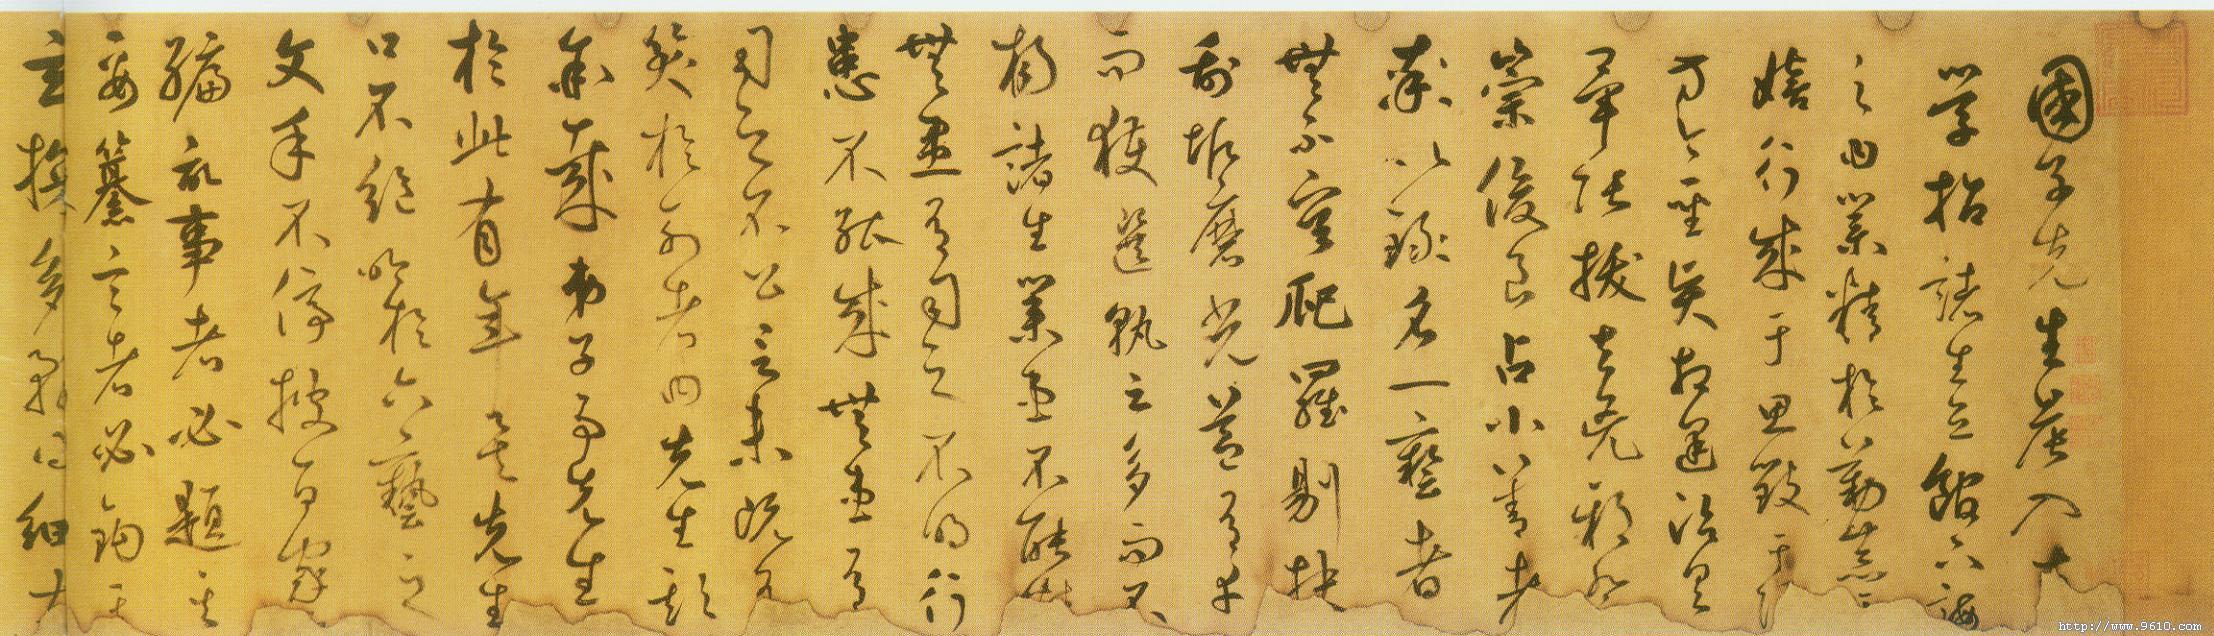 國子先生晨入大
學招諸生立館下誨
之曰業精於勤荒于
嬉行成于思毀于
方今聖賢相逢治具
畢張拔去兇邪登
崇俊良占小善者
率以錄名一藝者
無不容爬羅剔抉
刮垢磨光蓋有幸
而獲選孰云多而不
揚諸生業患不能精
無患有司之不明行
患不能成無患有
司之不公言未既有
笑於列者曰先生欺
余哉弟子事先生
於此有年矣先生
口不絕吟於六藝之
文手不停披百家
編記事者必題其
要纂言者必鉤其
玄多務得細大
http://www.9610.com